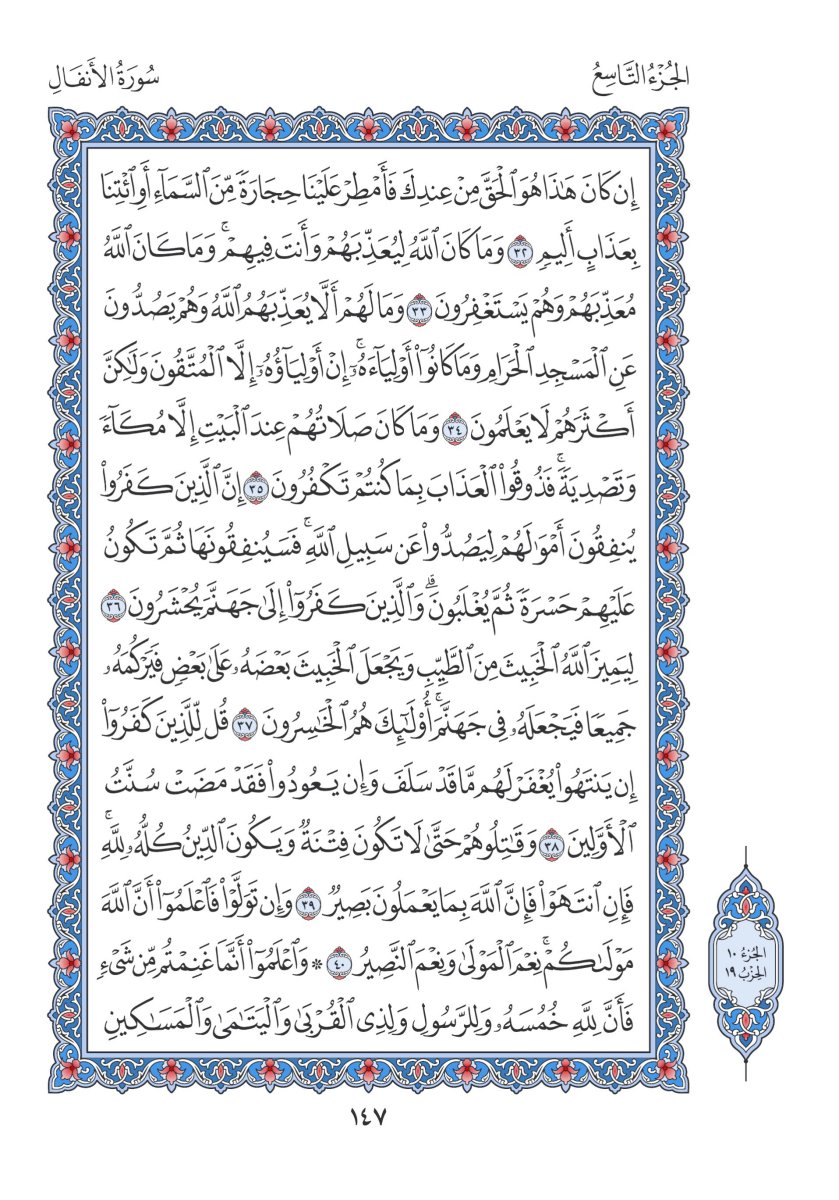 الجُزْءُ التَّاسِعُ
سُورَةُ الأَنفَالِ
إِن كَانَ هَٰذَا هُوَ ٱلْحَقَّ مِنْ عِندِكَ فَأَمْطِرْ عَلَيْنَا حِجَارَةً مِّنَ ٱلسَّمَآءِ أَوِ ٱئْتِنَا
بِعَذَابٍ أَلِيمٍ ٣٢ وَمَا كَانَ ٱللَّهُ لِيُعَذِّبَهُمْ وَأَنتَ فِيهِمْۚ وَمَا كَانَ ٱللَّهُ
مُعَذِّبَهُمْ وَهُمْ يَسْتَغْفِرُونَ ٣٣ وَمَا لَهُمْ أَلَّا يُعَذِّبَهُمُ ٱللَّهُ وَهُمْ يَصُدُّونَ
عَنِ ٱلْمَسْجِدِ ٱلْحَرَامِ وَمَا كَانُوٓا۟ أَوْلِيَآءَهُۥٓۚ إِنْ أَوْلِيَآؤُهُۥٓ إِلَّا ٱلْمُتَّقُونَ وَلَٰكِنَّ
أَكْثَرَهُمْ لَا يَعْلَمُونَ ٣٤ وَمَا كَانَ صَلَاتُهُمْ عِندَ ٱلْبَيْتِ إِلَّا مُكَآءً
وَتَصْدِيَةًۚ فَذُوقُوا۟ ٱلْعَذَابَ بِمَا كُنتُمْ تَكْفُرُونَ ٣٥ إِنَّ ٱلَّذِينَ كَفَرُوا۟
يُنفِقُونَ أَمْوَٰلَهُمْ لِيَصُدُّوا۟ عَن سَبِيلِ ٱللَّهِۚ فَسَيُنفِقُونَهَا ثُمَّ تَكُونُ
عَلَيْهِمْ حَسْرَةً ثُمَّ يُغْلَبُونَۗ وَٱلَّذِينَ كَفَرُوٓا۟ إِلَىٰ جَهَنَّمَ يُحْشَرُونَ ٣٦
لِيَمِيزَ ٱللَّهُ ٱلْخَبِيثَ مِنَ ٱلطَّيِّبِ وَيَجْعَلَ ٱلْخَبِيثَ بَعْضَهُۥ عَلَىٰ بَعْضٍ فَيَرْكُمَهُۥ
جَمِيعًا فَيَجْعَلَهُۥ فِى جَهَنَّمَۚ أُو۟لَٰٓئِكَ هُمُ ٱلْخَٰسِرُونَ ٣٧ قُل لِّلَّذِينَ كَفَرُوٓا۟
إِن يَنتَهُوا۟ يُغْفَرْ لَهُم مَّا قَدْ سَلَفَ وَإِن يَعُودُوا۟ فَقَدْ مَضَتْ سُنَّتُ
ٱلْأَوَّلِينَ ٣٨ وَقَٰتِلُوهُمْ حَتَّىٰ لَا تَكُونَ فِتْنَةٌ وَيَكُونَ ٱلدِّينُ كُلُّهُۥ لِلَّهِۚ
فَإِنِ ٱنتَهَوْا۟ فَإِنَّ ٱللَّهَ بِمَا يَعْمَلُونَ بَصِيرٌ ٣٩ وَإِن تَوَلَّوْا۟ فَٱعْلَمُوٓا۟ أَنَّ ٱللَّهَ
مَوْلَىٰكُمْۚ نِعْمَ ٱلْمَوْلَىٰ وَنِعْمَ ٱلنَّصِيرُ ٤٠ * وَٱعْلَمُوٓا۟ أَنَّمَا غَنِمْتُم مِّن شَىْءٍ
فَأَنَّ لِلَّهِ خُمُسَهُۥ وَلِلرَّسُولِ وَلِذِى ٱلْقُرْبَىٰ وَٱلْيَتَٰمَىٰ وَٱلْمَسَٰكِينِ
الجُزءُ ١٠
الحِزْبُ ١٩
١٤٧